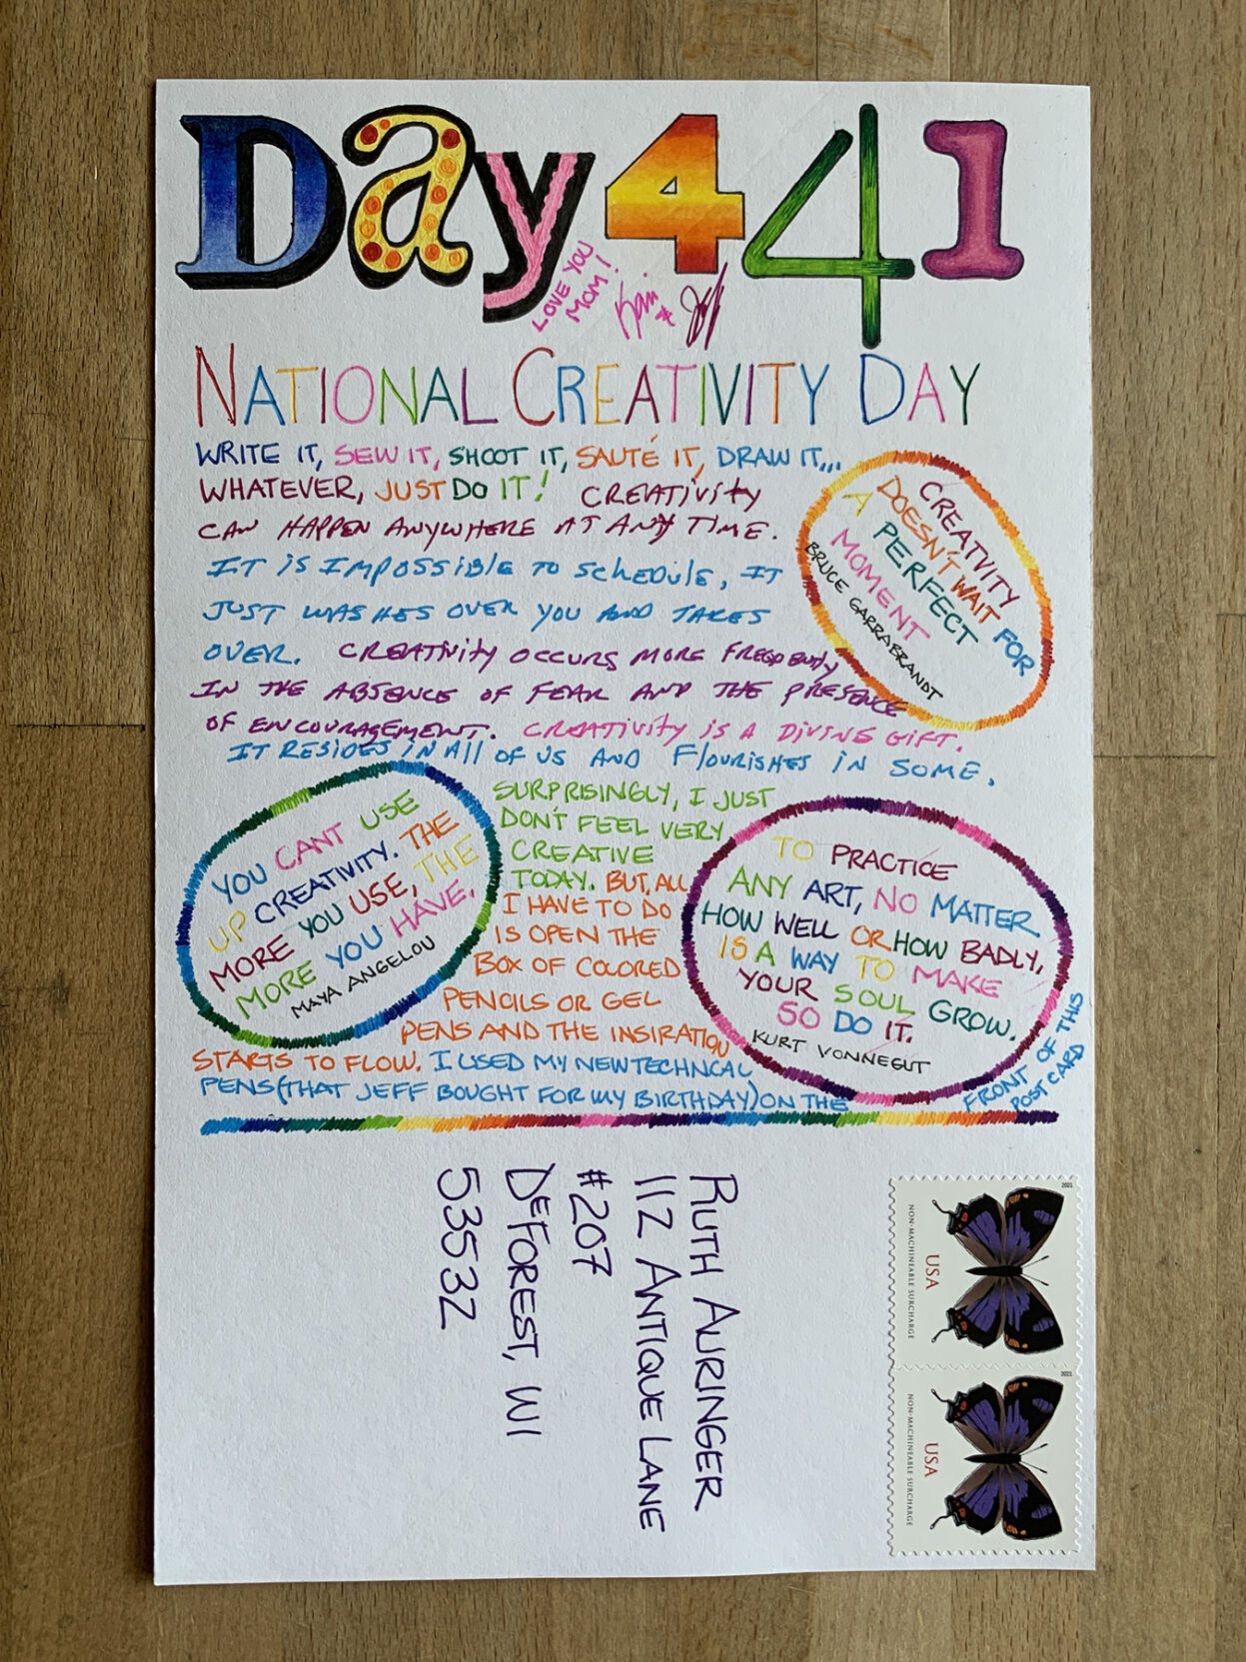 Day 441
LOVE YOU
MOM!
NATIONAL CREATIVITY DAY
WRITE IT, SEW IT, SHOOT IT, SAUTÉ IT, DRAW IT...
WHATEVER, JUST DO IT! CREATIVITY
CAN HAPPEN ANYWHERE AT ANY TIME.
IT IS IMPOSSIBLE TO SCHEDULE, IT
JUST WASHES OVER YOU AND TAKES
OVER. CREATIVITY OCCURS MORE FREQUENTLY
IN THE ABSENCE OF FEAR AND THE PRESENCE
OF ENCOURAGEMENT. CREATIVITY IS A DIVINE GIFT.
IT RESIDES IN All OF US AND FlOURISHES IN SOME.
CREATIVITY
DOESN'T WAIT FOR
A PERFECT
MOMENT
BRUCE GARRABRANDT
YOU CANT USE
UP CREATIVITY. THE
MORE YOU USE, THE
MORE YOU HAVE.
MAYA ANGELOU
SURPRISINGLY, I JUST
DON'T FEEL VERY
CREATIVE
TODAY. BUT, ALL
I HAVE TO DO
IS OPEN THE
BOX OF COLORED
PENCILS OR GEL
PENS AND THE INSIRATION
STARTS TO FLOW. I USED MY NEW TECHNCAL
PENS (THAT JEFF BOUGHT FOR MY BIRTHDAY) ON THE
FRONT OF THIS
POST CARD
TO PRACTICE
ANY ART, NO MATTER
HOW WELL OR HOW BADLY,
IS A WAY TO MAKE
YOUR SOUL GROW.
SO DO IT.
KURT VONNEGUT
RUTH AURINGER
112 ANTIQUE LANE
#207
DEFOREST, WI
53532
2021
USA
NON-MACHINEABLE SURCHARGE
2021
USA
NON-MACHINEABLE SURCHARGE